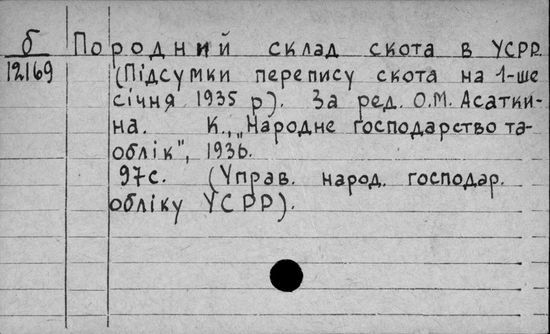 б Породний склад скота в УСРР.
12169 (Підсумки перепису скота на 1-ше
січня 1935 р). За ред. О.М. Асатки-
на. К., „Народне господарство та-
облік", 1936.
97с. (Управ. народ. господар.
обліку УСРР).